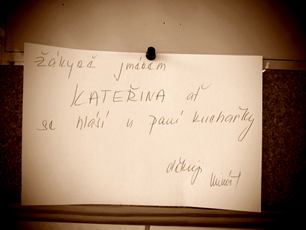 žákyně jménem
KATEŘINA ať
se hlásí u paní kuchařky
děkuji